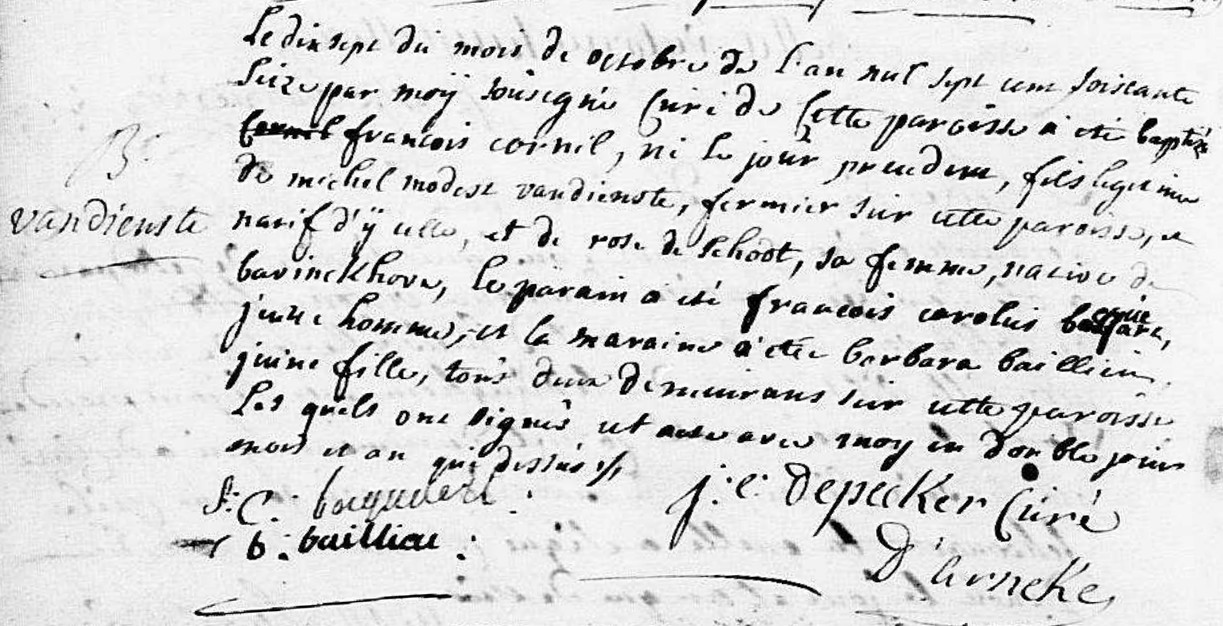 Le dix sept du mois de octobre de l'an mil sept cent soixante
seize par moÿ sousigné curé de cette paroisse a été baptizé
françois cornil, né le jour precedent, fils legitime
de michel modest vandienste, fermier sur cette paroisse, et
B.
vandienste
natif d'ÿ celle, et de rose de schodt, sa femme, native de
bavinckhove, le parain a été françois carolus
jeune homme, et la maraine a été barbara baillieu,
jeune fille, tous deux demeurans sur cette paroisse
Les quels ont signés cet acte avec moy en double jour
mois et an que dessus
f: C: 
j: e: depecker Curé
b: bailliu:
D'arneke